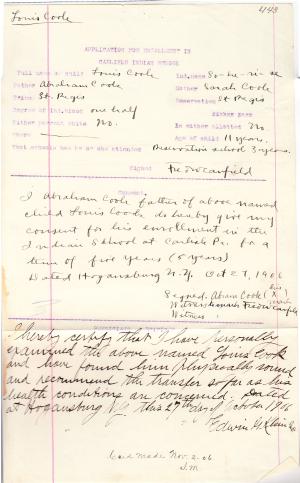 Louis Cook
443
APPLICATION FOR ENROLLMENT IN
CARLISLE INDIAN SCHOOL
Full name of child Louis Cook Ind.name So-se-
Father Abraham Cook Mother Sarah Cook
Tribe St Regis Reservation St Regis
Degree of Ind.blood one half
Either parent white No. Is either allotted No
Where Age of child 11 years.
What schools has he or she attended Reservation school 3 years.
Signed Fred W Canfield
Consent.
I Abraham Cook father of above named
child Louis Cook do hereby give my
consent for his enrollment in the
Indian School at Carlisle Pa. for a
term of five years (5 years)
Dated Hogansburg N.Y. Oct 27, 1906
Signed. Abram Cook (his X mark)
Witness Fred W Canfield
Witness
I hereby certify that I have personally
examined the above named Louis Cook
and have found him physically sound
and recommend the transfer so far as his
health conditions are concerned. Dated
at Hogansburg NY this 27th day of October 1906
Edwin H Klein
Card made Nov. 2-06
J.M.